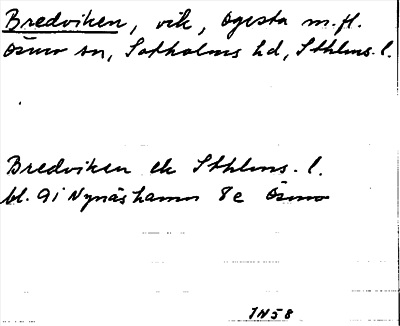 Bredviken, vik, Ogesta m.fl.
Ösmo sn, Sotholms hd, Sthlms. l.
Bredviken ek Sthlms. l.
bl. 9i Nynäshamn 8e Ösmo
IN58